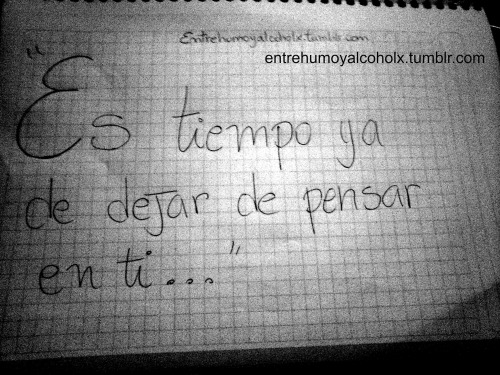 Entrehumoyalcoholx.tumblr.com
entrehumoyalcoholx.tumblr.com
"Es tiempo ya
de dejar de pensar
en ti..."